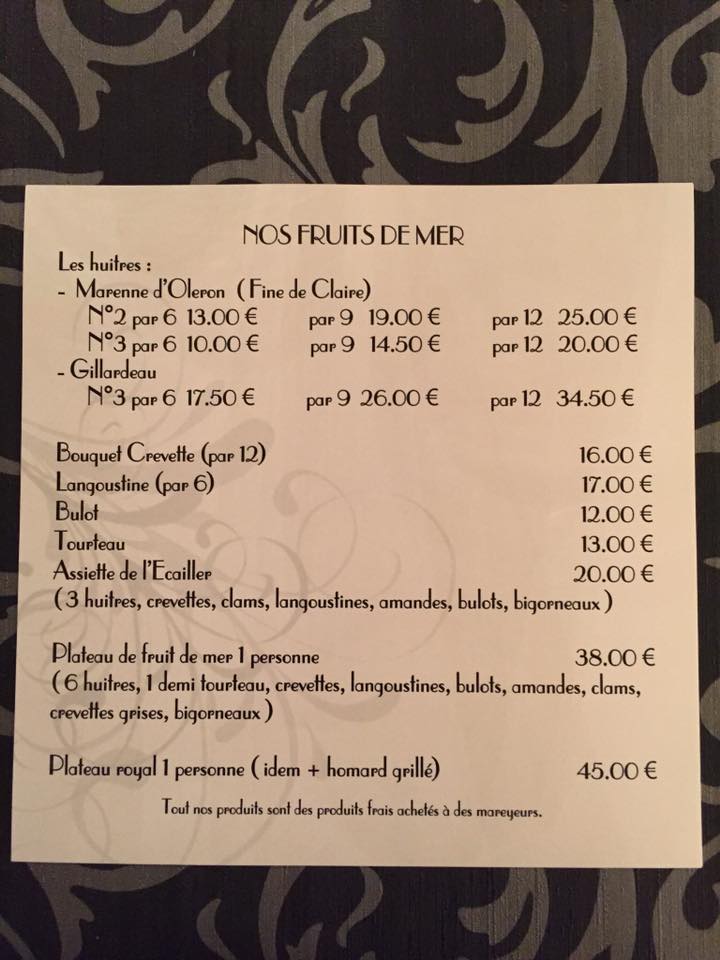 NOS FRUITS DE MER
Les huitres :
- Marenne d'Oleron (Fine de Claire)
N°2 par 6 13.00 € par 9 19.00 € par 12 25.00 €
N°3 par 6 10.00 € par 9 14.50 € par 12 20.00 €
- Gillardeau
N°3 par 6 17.50 € par 9 26.00 € par 12 34.50 €
Bouquet Crevette (par 12) 16.00 €
Langoustine (par 6) 17.00 €
Bulot 12.00 €
Tourteau 13.00 €
Assiette de l'Ecailler 20.00 €
( 3 huitres, crevettes, clams, langoustines, amandes, bulots, bigorneaux )
Plateau de fruit de mer 1 personne 38.00 €
( 6 huitres, 1 demi tourteau, crevettes, langoustines, bulots, amandes, clams,
crevettes grises, bigorneaux )
Plateau royal 1 personne ( idem + homard grillé) 45.00 €
Tout nos produits sont des produits frais achetés à des mareyeurs.